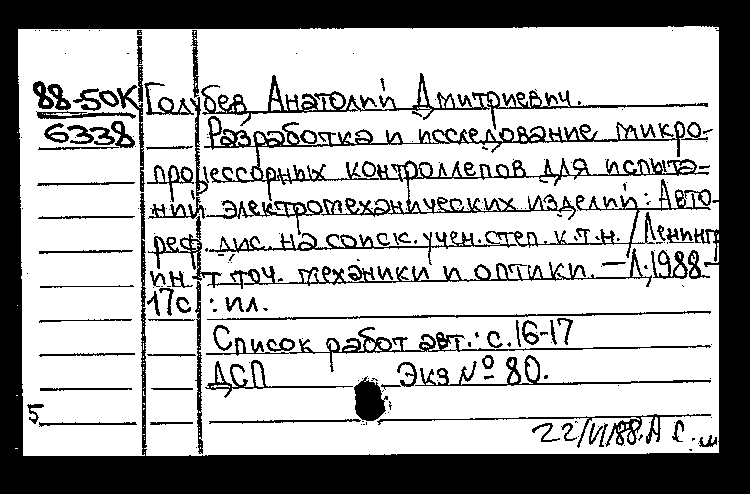 88-50К Голубев, Анатолий Дмитриевич.
6338 Разработка и исследование микро-
процессорных контроллеров для испыта=
ний электромеханических изделий: Авто-
реф. дис. на соиск. учен. степ. к.т.н. / Ленингр
ин-т точ. механики и оптики. — Л., 1988-
17с. : ил.
Список работ авт.: с.16-17
ДСП Экз № 80.
5
22/VI/88.